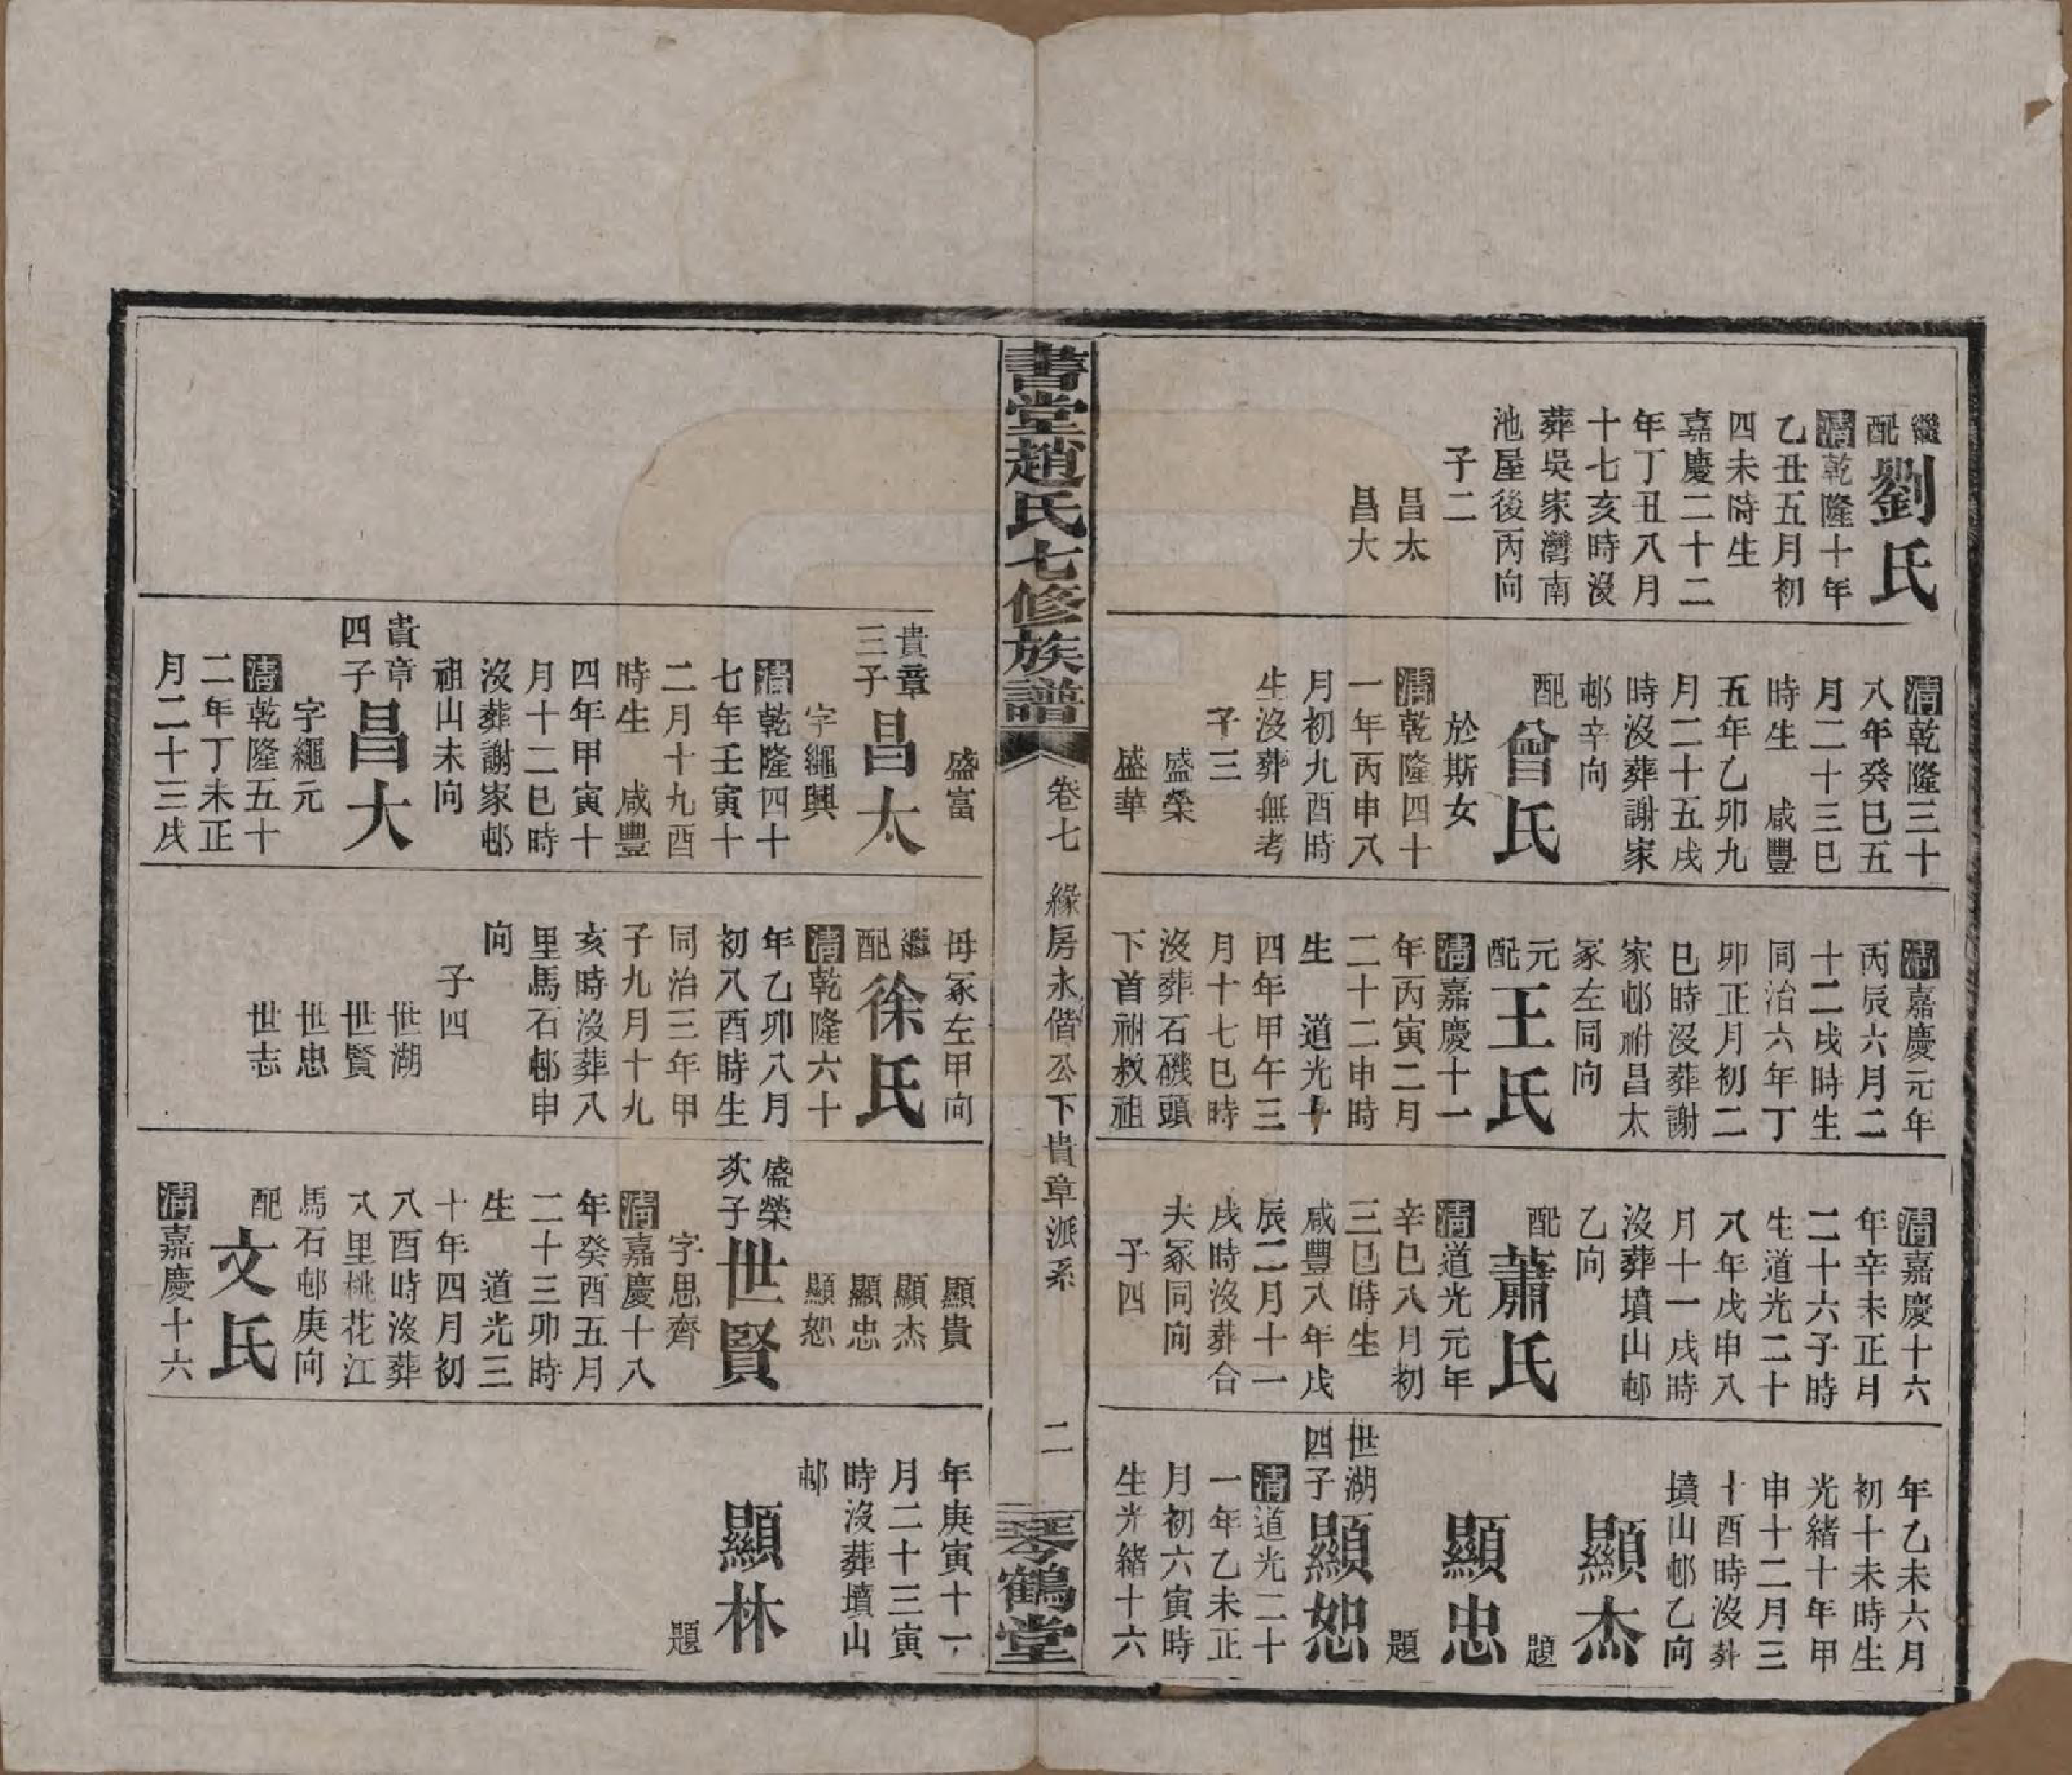 繼配劉氏
清乾隆十年
乙丑五月初
四未時生
嘉慶二十二
年丁丑八月
十七亥時沒
葬吳家灣南
池屋後丙向
子二
昌太
昌大
清乾隆三十
八年癸巳五
月二十三巳
時生 咸豐
五年乙卯九
月二十五戌
時沒葬謝家
邨辛向
配曾氏
於斯女
清乾隆四十
一年丙申八
月初九酉時
生沒葬無考
子三
盛榮
盛華
清嘉慶元年
丙辰六月二
十二戌時生
同治六年丁
卯正月初二
巳時沒葬謝
家邨祔昌太
冢左同向
元配王氏
清嘉慶十一
年丙寅二月
二十二申時
生 道光十
四年甲午三
月十七巳時
沒葬石磯頭
下首祔叔祖
清嘉慶十六
年辛未正月
二十六子時
生道光二十
八年戊申八
月十一戌時
沒葬墳山邨
乙向
配蕭氏
清道光元年
辛巳八月初
三巳時生
咸豐八年戊
辰二月十一
戌時沒葬合
夫冢同向
子四
年乙未六月
初十未時生
光緒十年甲
申十二月三
十酉時沒葬
墳山邨乙向
顯杰
題
顯忠
題
世湖四子顯恕
清道光二十
一年乙未正
月初六寅時
生光緒十六
書堂趙氏七修族譜
卷七 緣房永偕公下貴章派系
二
琴鶴堂
盛富
貴章三子昌太
字繩興
清乾隆四十
七年壬寅十
二月十九酉
時生 咸豐
四年甲寅十
月十二巳時
沒葬謝家邨
祖山未向
貴章四子昌大
字繩元
清乾隆五十
二年丁未正
月二十三戌
母冢左甲向
繼配徐氏
清乾隆六十
年乙卯八月
初八酉時生
同治三年甲
子九月十九
亥時沒葬八
里馬石邨申
向
子四
世湖
世賢
世忠
世志
顯貴
顯杰
顯忠
顯恕
盛榮次子世賢
字思齊
清嘉慶十八
年癸酉五月
二十三卯時
生 道光三
十年四月初
八酉時沒葬
八里桃花江
馬石邨庚向
配文氏
清嘉慶十六
年庚寅十一
月二十三寅
時沒葬墳山
邨
顯林
題